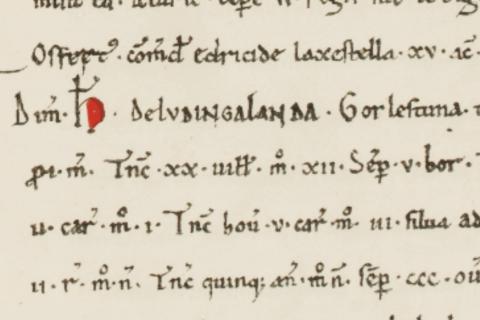 Osfert. com̄d edricide laxestella · xv · ac̄
Dim̄ · H̄ · De LVDINGALANDA · Gorlestuna ·
p̱ · m̄ · Tn̄c · xx · uill̄ · m̊ · xii · Sēp · v · bor ·
ii · car̄ · m̊ · i · Tn̄c hoū · v · car̄ m̊ · iii · silua ad
ii · r̄ · m̊ · n̄ · Tn̄c quinq; an̄ · m̊ n̄ · sēp · ccc · oū